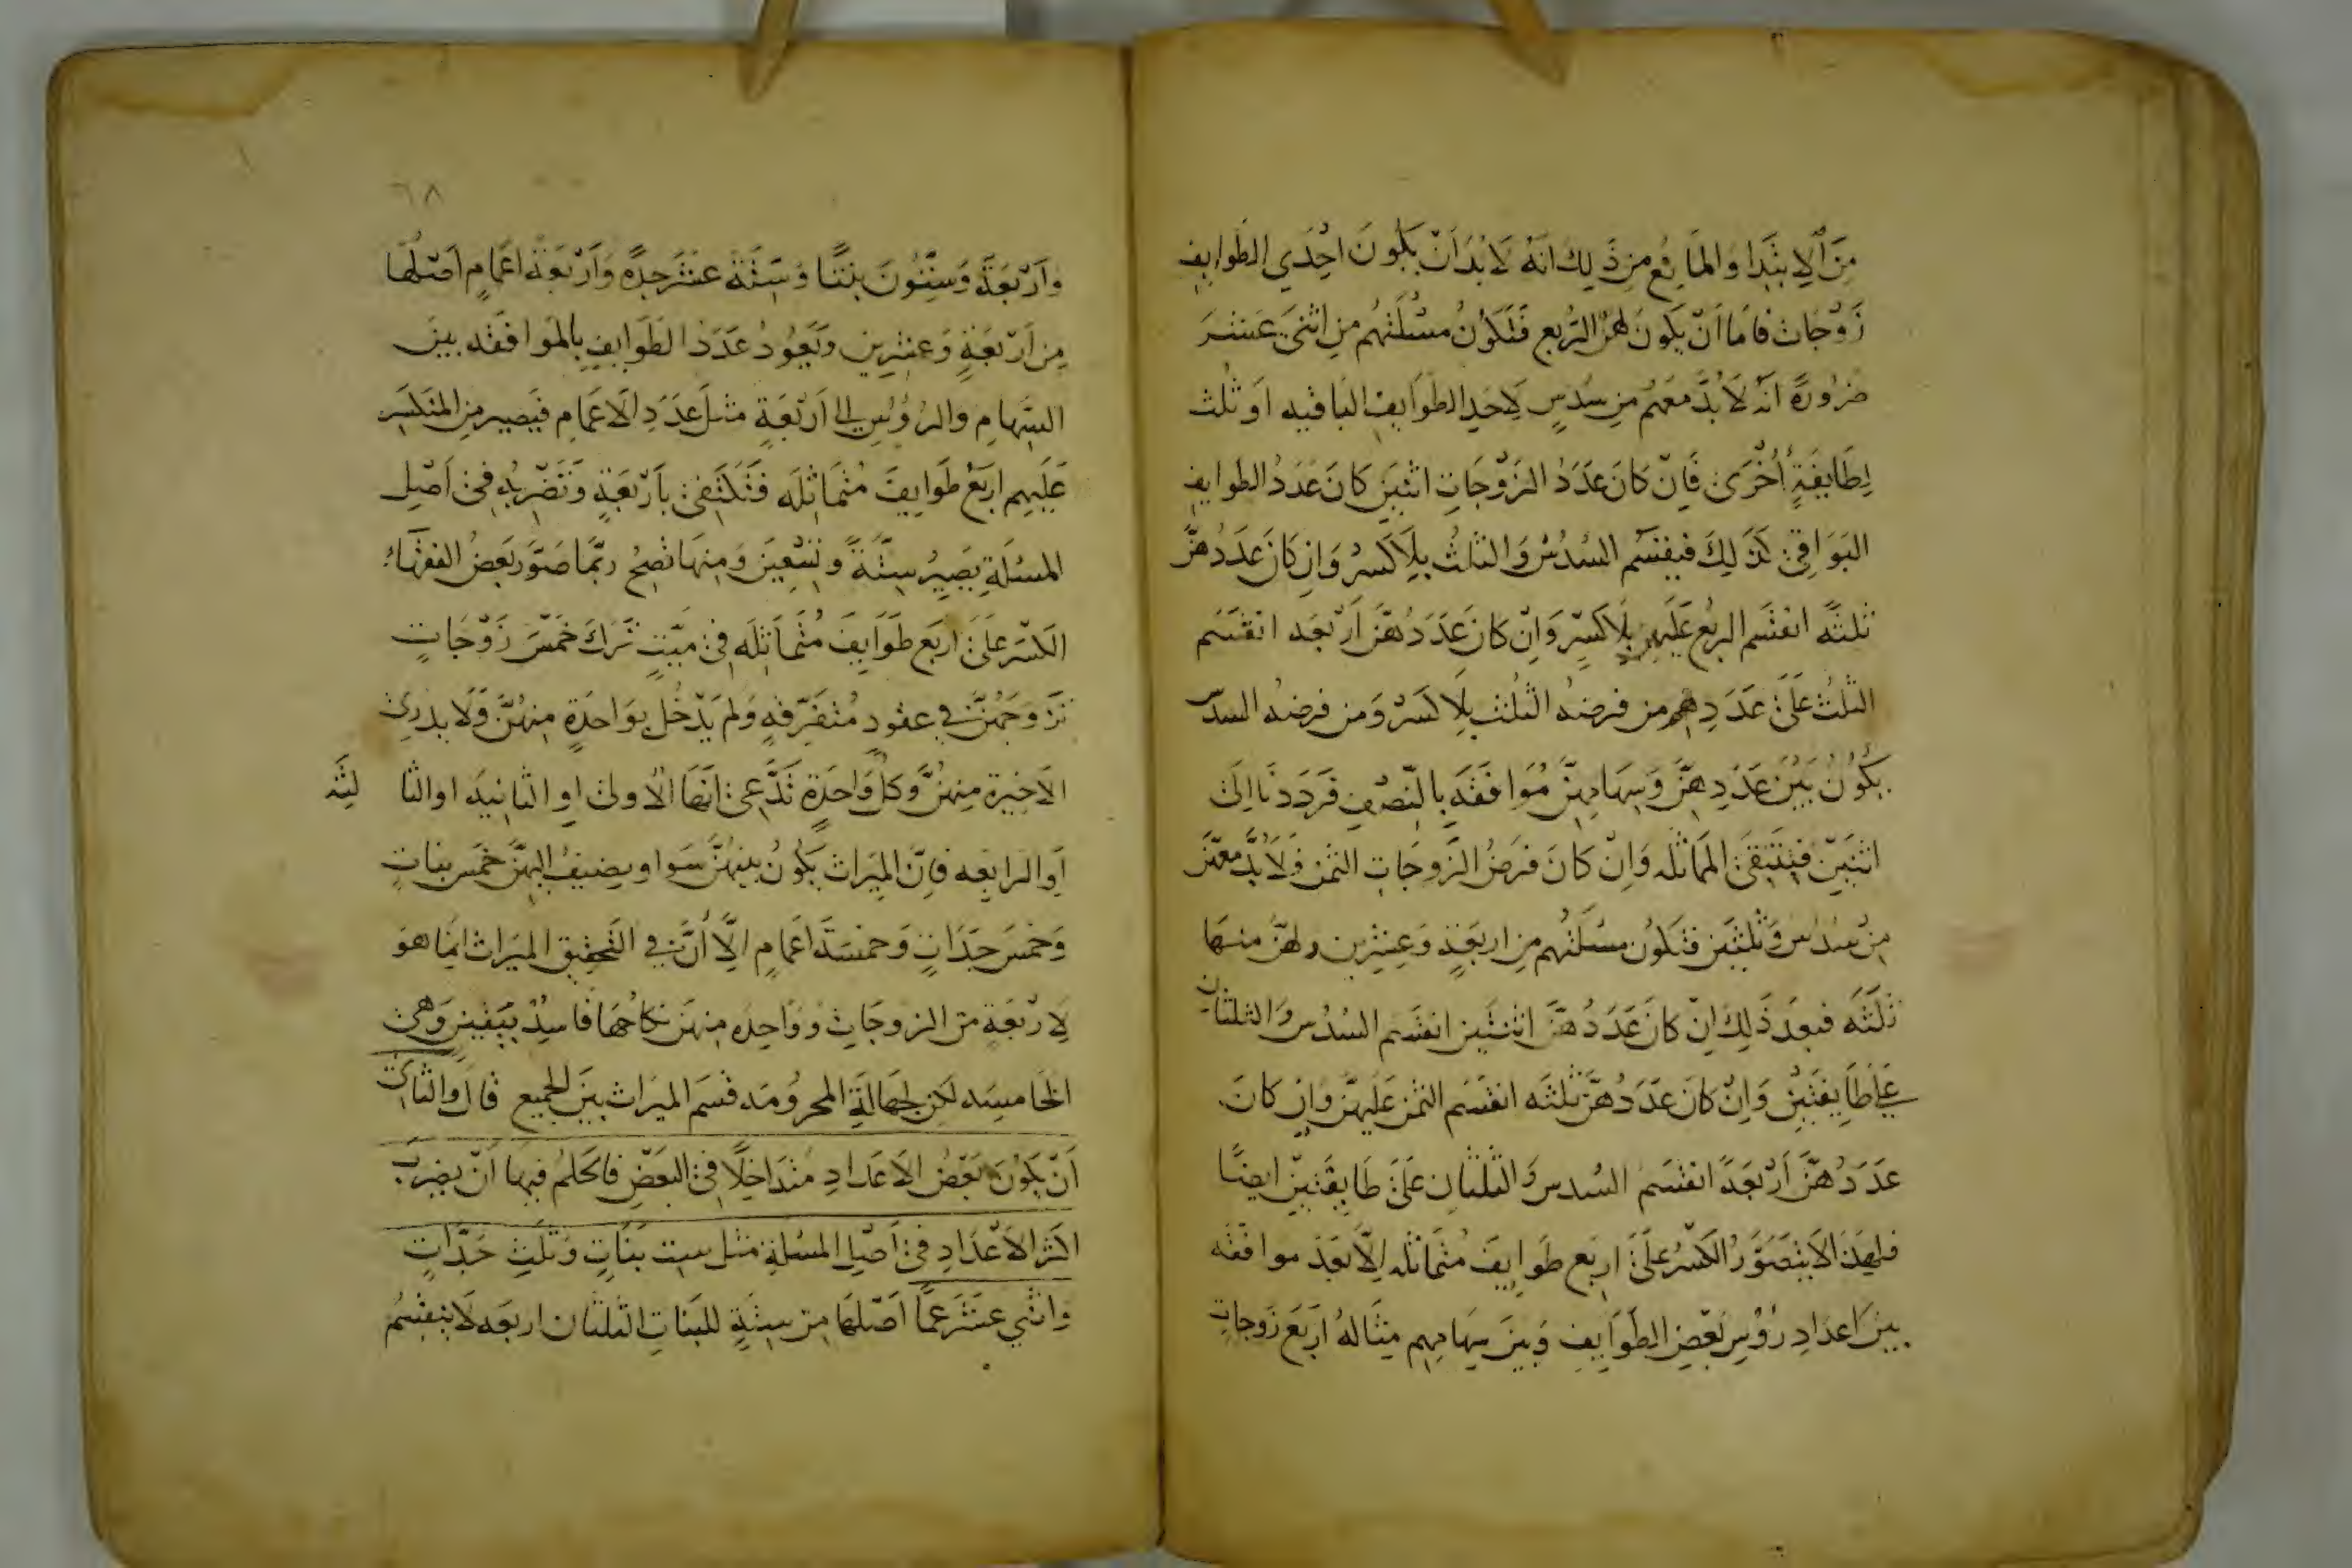 مِنَ الاِبْتِدَا وَالمَانِع مِن ذَلِكَ اَنَّهُ لَابُدَ اَنْ يَكُونَ اِحْدَي الطَوايِفِ
زَوْجَات فَامَا اَنْ يَكونَ لَهُنَّ الرُّبع فَتَكوُنُ مسْئلَتُهُم مِن اثنَىْ عَشَرَ
ضَرُورَةً انَّه لَابُدَّ مَعَهُم مِن سُدُسٍ لِاَحَدِ الطَوَايفِ البَاقيه اَو ثُلث
لِطَايفَةٍ اُخْرَى فَاِنْ كَانَ عَدَدُ الزَوْجَاتِ اثنَينِ كَانَ عَدَدُ الطَوايفِ
البَوَاقِىْ كَذَلِكَ فيَنقسِم السُدُسُ وَالثلثُ بِلَا كَسْرٍ وَاِن كَانَ عَدَدُهُنَّ
ثلثَةً انقسَم الربعُ عَلَيهِن بِلَا كَسْرٍ وَاِنْ كَانَ عَدَدُهُنَّ اَرْبَعَه انقَسَم
الثلثُ عَلَى عَدَدِهِم من فرضهُ الثلث بِلَا كَسْر وَمن فرضهُ السدس
يَكُونُ بَيْنَ عَدَدِهِنَّ وَسِهَامِهِنَّ مُوَافَقَه بِالنّصْفِ فَرَدَدنَا اِلَى
اثنَيْنِ فيَنتَبَقى المَمَاثله وَاِنْ كَانَ فَرضُ الزَوجَاتِ الثمن فَلَابُدَّ مَعَهُنَّ
مِنْ سُدسٍ وَثلثَين فتكوُن مسئلتُهم مِن اربَعَةٍ وَعِشْرِين ولهُنَّ منهَا
ثَلثَه فبعدَ ذَلِكَ اِنْ كانَ عَدَدُهُنَّ اثنَتَينِ انقَسَم السُدُس وَالثلثانِ
عَلَى طَايفَتَيْنِ وَاِنْ كَانَ عَدَدُهُنَّ ثلثَه انقَسَم الثمن عَلَيهنَّ وَاِن كَانَ
عَدَدُهُنَّ اَرْبَعَةً انقَسَم السُدس وَالثلثانِ عَلَى طَايفَتَينِ ايضًا
فلِهَذا لَا يتصَوَّرُ الكَسْرُ عَلَى اربَع طَوايِفَ مُتَمَاثله اِلّا بَعْدَ موافقَه
بينَ اعدَادِ رُؤسِ بَعْضِ الطَوَايفِ وَبينَ سِهَامِهِم مِثَالهُ اَربَعَ زَوجَاتٍ
٦٨
وَاَرْبَعَةً وَسِتّوُنَ بنتًا وَسِتَّةَ عشَرَ جدَّةً وَاَرْبَعَة اَعمَامٍ اَصْلُهَا
مِن اَرْبَعَةٍ وَعشرِين وَتَعُودُ عَدَدُ الطَوايفِ بِالموافقه بينَ
السِّهَامِ والرُؤُسِ الى اَرْبَعَةٍ مثلَ عَدَدِ الاعمَامِ فيَصِير مِن المنكسَر
عَلَيهِم اربَعُ طَوَايفَ مُتَمَاثِلَه فَتَكتَفِىْ بِاَرْبَعَةٍ وَتَضْرِبُه فىْ اَصْلِ
المسئلَةِ يَصِيرُ سِتَّةً وتِسْعِينَ وَمِنهَا تصِحُ رَبمّا صَوَّرَ بَعضُ الفقهَاءُ
الكسْر عَلَىْ اربَع طَوَايفَ مُتَمَاثِلَه فىْ مَيّتٍ تَرَكَ خَمْسَ زَوْجَاتٍ
تَزَوَجَهُنَّ في عقودٍ مُتَفَرِقهٍ وَلَم يَدْخُل بِوَاحدَةٍ مِنهُنَّ وَلَا يدرِى
الاَخِيرة مِنهُنَّ وَكلُ وَاحِدَةٍ تَدَّعِىْ اَنَهَا الاُولى اوِ الثانِيَه اوِ الثا لِثَه
اَوِ الرابعه فاِنَّ المِيَراثَ يَكُونُ بينهُنَّ سَوا وَيضِيفُ اليهِنَّ خَمسَ بناتٍ
وَخَمسَ جَدَاتٍ وَخمسَةَ اعمَامٍ اِلّا اَنَّ في التَحْقِيقِ المِيَراث انمَا هوَ
لِاَرْبَعَةٍ مِن الزوجَاتِ وَوَاحِده مِنهن نكاحُهَا فَاسِدٌ بِيَقينٍ وَهىَ
الخامِسَه لكن لجَهَالَةِ المحرُومَه قسَم المِيَراث بَينَ الجميع قالَ وَالثانى
اَنْ يَكُونَ بَعْضُ الاَعدادِ مُتَدَاخِلًا فىْ البَعضِ فالحكمُ فيهَا اَنْ يضرِبَ
اكثر الاَعْدَادِ فىْ اَصْلِ المسئلةِ مثل ست بَنَاتٍ وَثلثِ جَدّاتٍ
وَاثني عَشَرَ عَمًّا اَصْلهَا مِن سِتَةٍ للبَنَاتِ الثلثانِ اربَعه لَا يَنقسِمُ